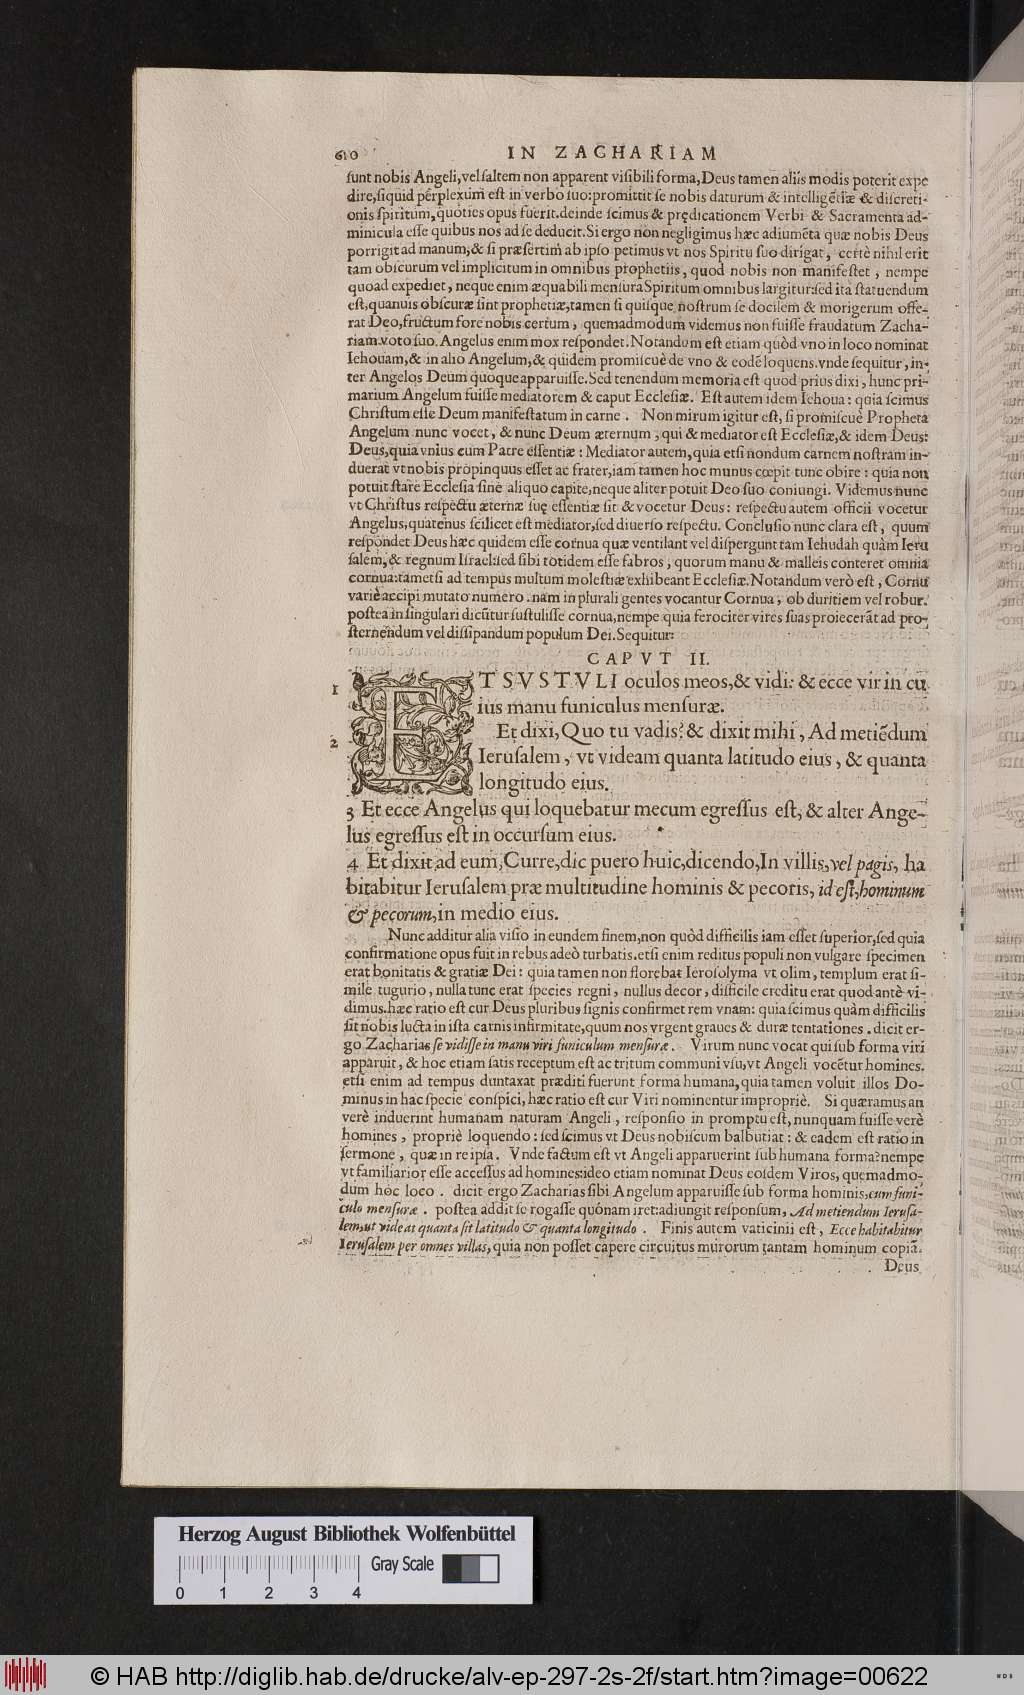 610 IN ZACHARIAM
ſunt nobis Angeli, vel ſaltem non apparent viſibili forma, Deus tamen aliis modis poterit expe
dire, ſiquid pérplexum eſt in verbo ſuo: promittit ſe nobis daturum & intelligẽtiæ & diſcreti-
onis ſpiritum, quoties opus fuerit. deinde ſcimus & prędicationem Verbi & Sacramenta ad-
minicula eſſe quibus nos ad ſe deducit. Si ergo non negligimus hæc adiumẽta quæ nobis Deus
porrigit ad manum; & ſi præſertim ab ipſo petimus vt nos Spiritu ſuo dirigat, certè nihil erit
tam obſcurum vel implicitum in omnibus prophetiis, quod nobis non manifeſtet, nempe
quoad expediet, neque enim æquabili menſura Spiritum omnibus largitur: ſed ita ſtatuendum
eſt, quanuis obſcuræ ſint prophetiæ, tamen ſi quiſque noſtrum ſe docilem & morigerum offe-
rat Deo, fructum fore nobis certum, quemadmodum videmus non fuiſſe fraudatum Zacha-
riam voto ſuo. Angelus enim mox reſpondet. Notandum eſt etiam quòd vno in loco nominat
Iehouam, & in alio Angelum, & quidem promiſcuè de vno & eodẽ loquens. vnde ſequitur, in-
ter Angelos Deum quoque apparuiſſe. Sed tenendum memoria eſt quod prius dixi, hunc pri-
marium Angelum fuiſſe mediatorem & caput Eccleſiæ. Eſt autem idem Iehoua: quia ſcimus
Chriſtum eſſe Deum manifeſtatum in carne. Non mirum igitur eſt, ſi promiſcuè Propheta
Angelum nunc vocet, & nunc Deum æternum, qui & mediator eſt Eccleſiæ, & idem Deus:
Deus, quia vnius cum Patre eſſentiæ: Mediator autem, quia etſi nondum carnem noſtram in-
duerat vt nobis propinquus eſſet ac frater, iam tamen hoc munus cœpit tunc obire: quia non
potuit ſtare Eccleſia ſine aliquo capite, neque aliter potuit Deo ſuo coniungi. Videmus nunc
vt Chriſtus reſpectu æternæ ſuę eſſentiæ ſit & vocetur Deus: reſpectu autem officii vocetur
Angelus, quatenus ſcilicet eſt mediator, ſed diuerſo reſpectu. Concluſio nunc clara eſt, quum
reſpondet Deus hæc quidem eſſe cornua quæ ventilant vel diſpergunt tam Iehudah quàm Ieru
ſalem, & regnum Iſrael: ſed ſibi totidem eſſe fabros, quorum manu & malleis conteret omnia
cornua: tametſi ad tempus multum moleſtiæ exhibeant Eccleſiæ. Notandum verò eſt, Cornu
variè accipi mutato numero. nam in plurali gentes vocantur Cornua, ob duritiem vel robur.
poſtea in ſingulari dicũtur ſuſtuliſſe cornua, nempe quia ferociter vires ſuas proiecerãt ad pro-
ſternendum vel diſſipandum populum Dei. Sequitur:
CAPVT II.
1 ET SVSTVLI oculos meos, & vidi: & ecce vir in cu
ius manu funiculus menſuræ.
2 Et dixi, Quo tu vadis? & dixit mihi, Ad metiẽdum
Ieruſalem, vt videam quanta latitudo eius, & quanta
longitudo eius.
3 Et ecce Angelus qui loquebatur mecum egreſſus eſt, & alter Ange-
lus egreſſus eſt in occurſum eius.
4 Et dixit ad eum, Curre, dic puero huic, dicendo, In villis, vel pagis, ha
bitabitur Ieruſalem præ multitudine hominis & pecoris, id eſt, hominum
& pecorum, in medio eius.
Nunc additur alia viſio in eundem finem, non quòd difficilis iam eſſet ſuperior, ſed quia
confirmatione opus fuit in rebus adeò turbatis. etſi enim reditus populi non vulgare ſpecimen
erat bonitatis & gratiæ Dei: quia tamen non florebat Ieroſolyma vt olim, templum erat ſi-
mile tugurio, nulla tunc erat ſpecies regni, nullus decor, difficile creditu erat quod antè vi-
dimus. hæc ratio eſt cur Deus pluribus ſignis confirmet rem vnam: quia ſcimus quàm difficilis
ſit nobis lucta in iſta carnis infirmitate, quum nos vrgent graues & duræ tentationes. dicit er-
gò Zacharias ſe vidiſſe in manu viri funiculum menſuræ. Virum nunc vocat qui ſub forma viri
apparuit, & hoc etiam ſatis receptum eſt ac tritum communi vſu, vt Angeli vocẽtur homines.
etſi enim ad tempus duntaxat præditi fuerunt forma humana, quia tamen voluit illos Do-
minus in hac ſpecie conſpici, hæc ratio eſt cur Viri nominentur impropriè. Si quæramus an
verè induerint humanam naturam Angeli, reſponſio in promptu eſt, nunquam fuiſſe verè
homines, propriè loquendo: ſed ſcimus vt Deus nobiſcum balbutiat: & eadem eſt ratio in
ſermone, quæ in re ipſa. Vnde factum eſt vt Angeli apparuerint ſub humana forma? nempe
vt familiarior eſſe acceſſus ad homines: ideo etiam nominat Deus eoſdem Viros, quemadmo-
dum hoc loco. dicit ergo Zacharias ſibi Angelum apparuiſſe ſub forma hominis, cum funi-
culo menſuræ. poſtea addit ſe rogaſſe quónam iret: adiungit reſponſum, Ad metiendum Ieruſa-
lem, ut videat quanta ſit latitudo & quanta longitudo. Finis autem vaticinii eſt, Ecce habitabitur
Ieruſalem per omnes villas, quia non poſſet capere circuitus murorum tantam hominum copiã.
Deus
Herzog August Bibliothek Wolfenbüttel
Gray Scale
0 1 2 3 4
© HAB http://diglib.hab.de/drucke/alv-ep-297-2s-2f/start.htm?image=00622